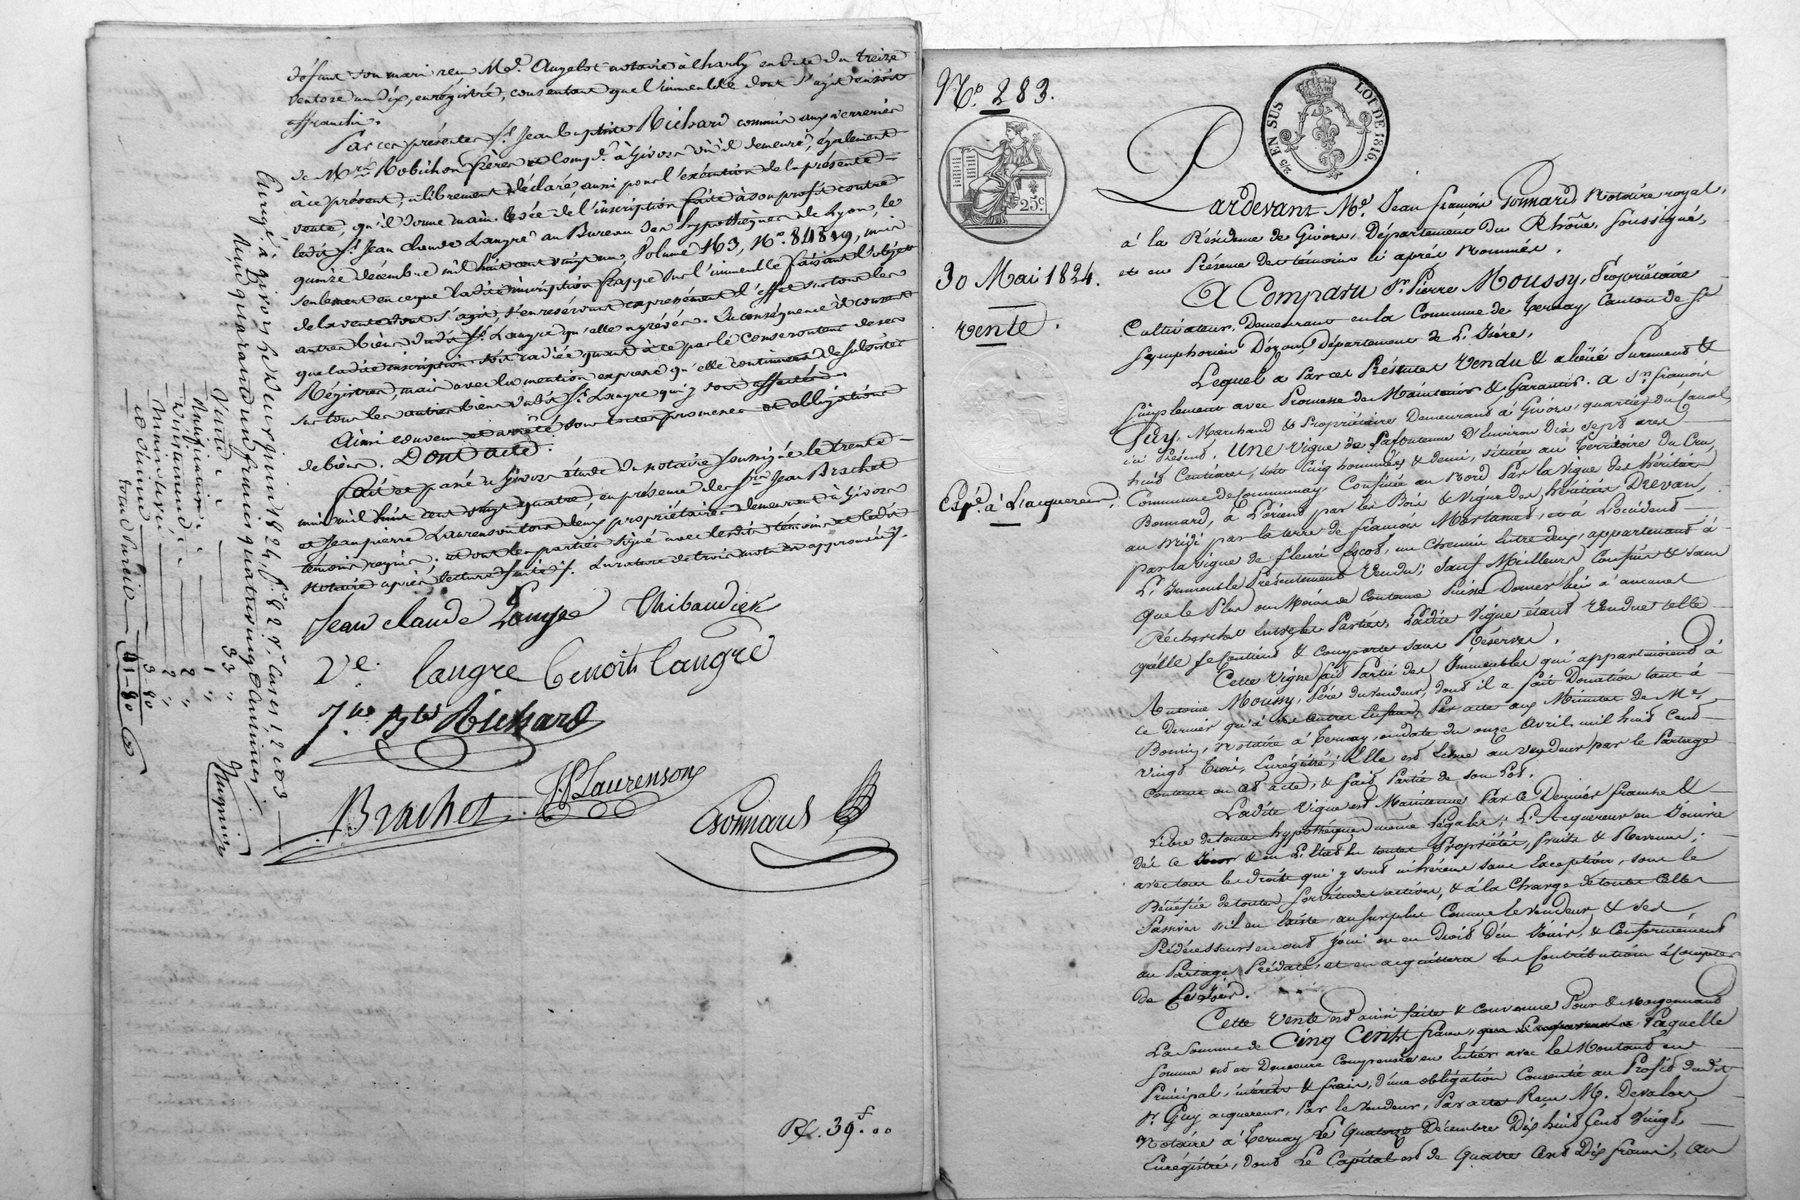 défunt son mari reçu Me. Angelot notaire à Charly en date du treize
ventose an dix, enrégistré, consentant que l'immeuble dont s'agit en soit
affranchi.
Par ces présentes Sr. Jean Baptiste Richard commis aux verreries
de Mrs. Robichon frères et Compe. à Givors où il demeure, également
à ce présent, a librement déclaré aussi pour l'exécution de la présente
vente, qu'il donne main-levée de l'inscription faite à son profit contre
ledit Sr. Jean Claude Langre au Bureau des hypothèques de Lyon, le
quinze décembre mil huit cent vingt un, Volume 163, No. 84819, mais
seulement en ce que ladite inscription frappe sur l'immeuble faisant l'objet
de la vente dont s'agit, s'en réservant expressément l'effet sur tous les
autres biens dudit Sr. Langre qu'elle a grévés. En conséquence il consent
que ladite inscription soit radiée quant à ce par le Conservateur de ses
Régistres, mais avec la mention expresse qu'elle continuera de subsister
sur tous les autres biens dudit Sr. Langre qui y sont affectés.
Ainsi convenu et arrêté sous les promesses et obligations
de biens. Dont acte:
Fait et passé à Givors étude du notaire soussigné le trente
mai mil huit cent vingt quatre, en présence des Srs. Jean Brachet
et Jean pierre Laurenson tous deux propriétaires demeurant à Givors
témoins requis, et ont les parties signé avec lesdits témoins et ledit
notaire après lecture faite ./. La rature de trois mots est approuvée ./.
Jean claude Langre Thibaudier
Ve. Langre Benoit Langre
Jn. Bte Richard
Brachet JPLaurenson
Gonnard
Enrégé. à givors le deux juin 1824, fo. 82 Vo. Cases 1, 2 et 3
Reçu quarante un francs quatre vingt centimes ./.
Vente
33 „
1 „
2 „
2 „
3 80
41-80
Rf. 39f. 00
No. 283.
2/5 EN SUS
LOI DE 1816
25c
30 Mai 1824.
vente.
Expé. à L'acquereur.
Pardevant Me. Jean françois Gonnard Notaire royal,
à la Résidence de Givors, Département du Rhône, soussigné,
et en Présence des témoins ci après Nommés.
A Comparu Sr. Pierre Moussy, Propriétaire
Cultivateur, Demeurant en la Commune de Ternay Canton de St
Symphorien D'ozon, Département de L'Isère,
Lequel a Par ces Présentes Vendu & aliéné Purement &
Simplement avec Promesse de Maintenir & Garantir. A Sr. françois
Guy, Marchand & Propriétaire Demeurant à Givors, quartier du Canal
ici Présent. Une Vigne de la Contenue d'Environ dix sept ares
huit Centiares, soit Cinq hommées & demi, située au Territoire du Cru,
Commune de Communay, Confinée au Nord Par la vigne des héritiers
Bonnard, à L'orient par les Bois & Vigne des héritiers Drevan,
au Midi par la terre de françois Martinod, et à L'occident
par la Vigne de fleuri Escot, un Chemin Entre deux, appartenant à
L'Immeuble Présentement Vendu; sauf Meilleurs Confins & sans
que le Plus ou Moins de Contenue Puisse Donner lieu à aucune
Recherche Entre les Parties, Ladite Vigne étant Vendue telle
qu'elle se Contient & Comporte sans Réserve.
Cette Vigne fait Partie des Immeubles qui appartenoient à
Antoine Moussy, Père du vendeur, dont il a fait Donation tant à
ce Dernier qu'à ses autres Enfans, Par acte aux Minutes de Me.
Bonin, Notaire à Ternay, en date du onze Avril mil huit Cent
Vingt Trois, Enrégistré; Elle est Echue au vendeur par le Partage
Contenu au dt acte, & fait Partie de son Lot.
Ladite Vigne est Maintenue Par ce Dernier franche &
Libre de toutes hypothèques même légales; L'Acquereur en Jouira
dès ce Jour & en L'état en toutes Propriétés, fruits & Revenus,
avec tous les droits qui y sont inhérens sans Exception, sous le
Bénéfice de toutes servitudes actives, & à la Charge de toutes Celles
Passives s'il en Existe, au surplus Comme le Vendeur & ses
Prédécesseurs en ont Joui ou eu Droit d'en Jouir, & Conformément
au Partage Prédaté, et en acquittera les Contributions à Compter
de Ce Jour.
Cette Vente est ainsi faite & Convenue Pour & Moyennant
La Somme de Cinq Cents francs, Laquelle
Somme est et Demeure Compensée en Entier avec le Montant en
Principal, intérêts & frais, d'une obligation Consentie au Profit dudit
Sr. Guy acquereur, Par le Vendeur, Par acte Reçu M. Devalors
Notaire à Ternay Le Quatorze Décembre Dix huit Cent Vingt,
Enrégistré, dont Le Capital est de Quatre Cent Dix francs, au